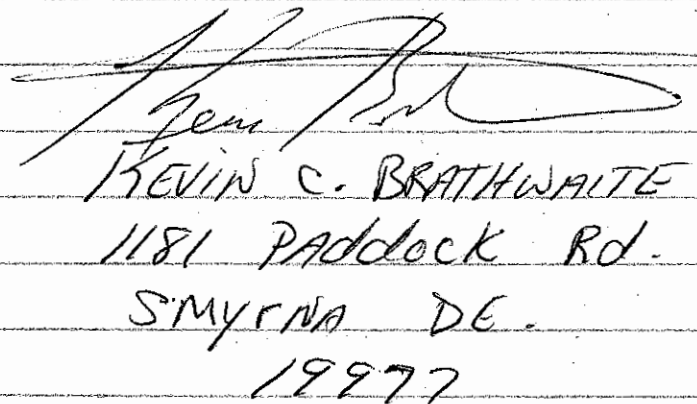 Kevin B
KEVIN C. BRATHWAITE
1181 PADDOCK Rd.
SMYRNA DE.
19977